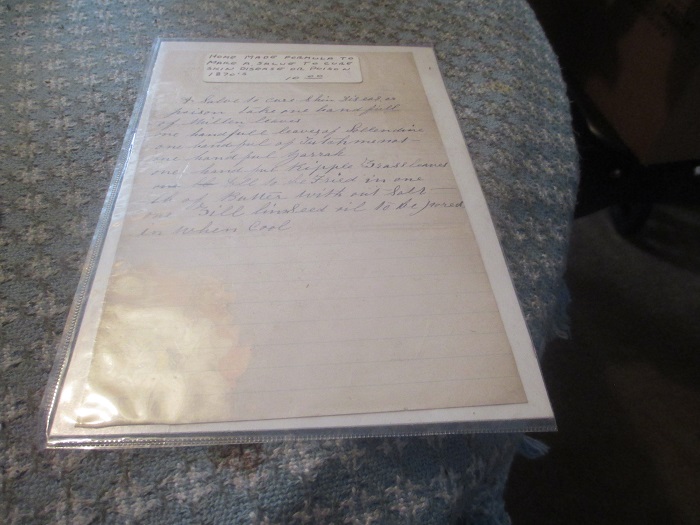 HOME MADE FORMULA TO
MAKE A SALVE TO CURE
SKIN DISEASE OR POISON
1870's
10.00
A Salve to cure Skin Diseas or
poison take one handfull
of Mullen leaves
one handfull leaves of
one handful of Tutchmenot
one handful Yarrah
one handful Ripple leaves
one to be Fried in one
lb of Butter with out Salt
one Gill linseed oil to be pored
in when Cool